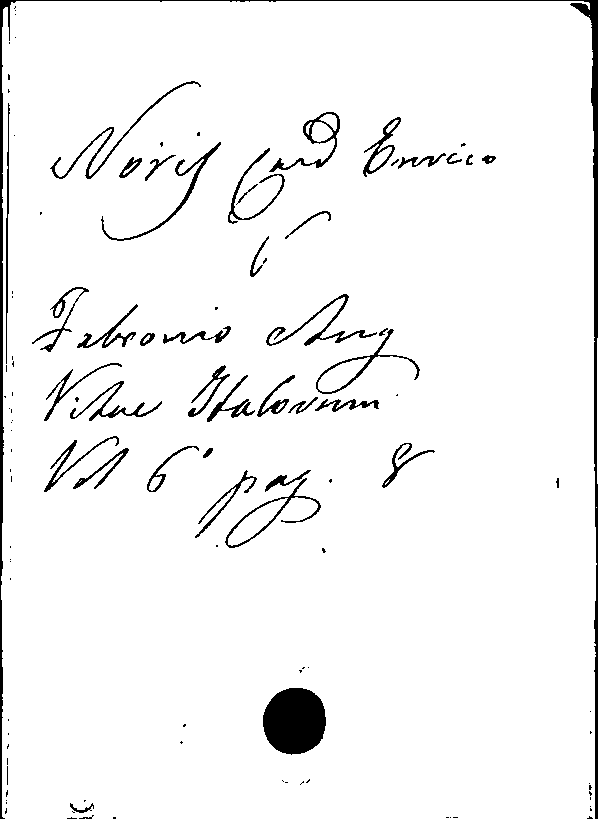 Noris Card Enrico
V
Fabronio Ang
Vitae Italorum
Vol 6° pag. 8